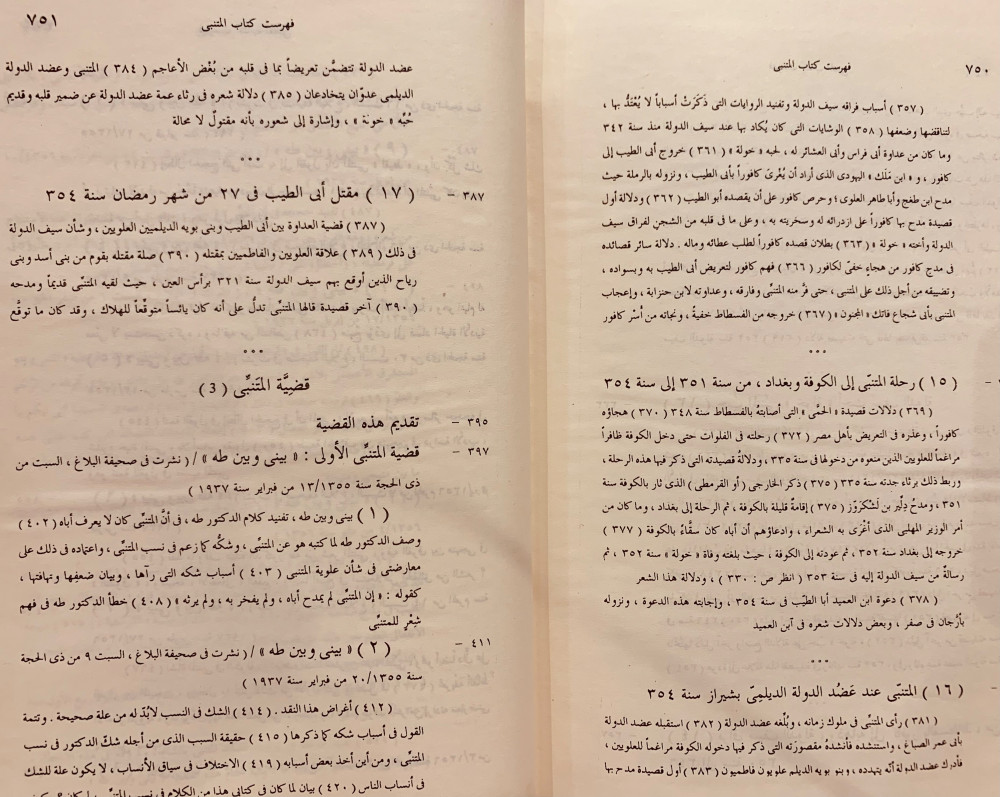 ٧٥٠
فهرست كتاب المتنبى
( ٣٥٧ ) أسباب فراقه سيف الدولة وتفنيد الروايات التى ذَكَرَتْ أسباباً لا يُعْتَدُّ بها ،
لتناقضها وضعفها ( ٣٥٨ ) الوشايات التى كان يُكاد بها عند سيف الدولة منذ سنة ٣٤٢
وما كان من عداوة أبى فراس وأبى العشائر له ، لحبه « خولة » ( ٣٦١ ) خروج أبى الطيب إلى
كافور ، و « ابن مَلَك » اليهودى الذى أراد أن يُغْرِىَ كافوراً بأبى الطيب ، ونزوله بالرملة حيث
مدح ابن طغج وأبا طاهر العلوى ؛ وحرص كافور على أن يقصده أبو الطيب ( ٣٦٢ ) ودلالة أول
قصيدة مدح بها كافوراً على ازدرائه له وسخريته به ، وعلى ما فى قلبه من الشجن لفراق سيف
الدولة وأخته « خولة » ( ٣٦٣ ) بطلان قصده كافوراً لطلب عطائه وماله . دلالة سائر قصائده
فى مدح كافور من هجاءٍ خفىّ لكافور ( ٣٦٦ ) فهم كافور لتعريض أبى الطيب به وبسواده ،
وتضييقه من أجل ذلك على المتنبى ، حتى فرَّ منه المتنبِّى وفارقه ، وعداوته لابن حنزابة ، وإعجاب
المتنبى بأبى شجاع فاتك « المجنون » ( ٣٦٧ ) خروجه من الفسطاط خفيةً ، ونجاته من أسْر كافور
• • •
( ١٥ ) رحلة المتنبّى إلى الكوفة وبغداد ، من سنة ٣٥١ إلى سنة ٣٥٤
( ٣٦٩ ) دلالات قصيدة « الحمّى » التى أصابتهُ بالفسطاط سنة ٣٤٨ ( ٣٧٠ ) هجاؤه
كافوراً ، وعذره فى التعريض بأهل مصر ( ٣٧٢ ) رحلته فى الفلوات حتى دخل الكوفة ظافراً
مراغماً للعلويين الذين منعوه من دخولها فى سنة ٣٣٥ ، ودلالةُ قصيدته التى ذكر فيها هذه الرحلة ،
وربط ذلك برثاء جدته سنة ٣٣٥ ( ٣٧٥ ) ذكر الخارجى ( أو القرمطى ) الذى ثار بالكوفة سنة
٣٥١ ، ومدحُ دِلَّير بن لَشْكَرَوَّز ( ٣٧٥ ) إقامةٌ قليلة بالكوفة ، ثم الرحلة إلى بغداد ، وما كان من
أمر الوزير المهلبى الذى أغْرَى به الشعراء ، وادعاؤهم أن أباه كان سقَّاءً بالكوفة ( ٣٧٧ )
خروجه إلى بغداد سنة ٣٥٢ ، ثم عودته إلى الكوفة ، حيث بلغته وفاة « خولة » سنة ٣٥٢ ، ثم
رسالةٌ من سيف الدولة إليه فى سنة ٣٥٣ ( انظر ص : ٣٣٠ ) ، ودلالة هذا الشعر
( ٣٧٨ ) دعوة ابن العميد أبا الطيّب فى سنة ٣٥٤ ، وإجابته هذه الدعوة ، ونزوله
بأرَّجان فى صفر ، وبعض دلالات شعره فى آبن العميد
• • •
( ١٦ ) المتنبّى عند عَضُد الدولة الديلمِىّ بشيراز سنة ٣٥٤
( ٣٨١ ) رأى المتنبِّى فى ملوك زمانه ، وبُلْغه عضد الدولة ( ٣٨٢ ) استقبله عضد الدولة
بأبى عمر الصباغ ، واستنشده فأنشدهُ مقصورَته التى ذكر فيها دخوله الكوفة مراغماً للعلويين ،
فأدرك عضد الدولة أنّه يتهدده ، وبنو بويه الديلم علويون فاطميون ( ٣٨٣ ) أول قصيدة مدح بها
فهرست كتاب المتنبى
٧٥١
عضد الدولة تتضمَّن تعريضاً بما فى قلبه من بُغْض الأعاجم ( ٣٨٤ ) المتنبى وعضد الدولة
الديلمى عدوّان يتخادعان ( ٣٨٥ ) دلالة شعره فى رثاء عمة عضد الدولة عن ضمير قلبه وقديم
حُبِّه « خولة » ، وإشارة إلى شعوره بأنه مقتولٌ لا محالة
• • •
٣٨٧ – ( ١٧ ) مقتل أبى الطيب فى ٢٧ من شهر رمضان سنة ٣٥٤
( ٣٨٧ ) قضية العداوة بين أبى الطيب وبنى بويه الديلميين العلويين ، وشأن سيف الدولة
فى ذلك ( ٣٨٩ ) علاقة العلويين والفاطميين بمقتله ( ٣٩٠ ) صلة مقتله بقوم من بنى أسد وبنى
رياح الذين أوقع بهم سيف الدولة سنة ٣٢١ برأس العين ، حيث لقيه المتنبى قديماً ومدحه
( ٣٩٠ ) آخر قصيدة قالها المتنبِّى تدلُّ على أنه كان يائساً متوقِّعاً للهلاك ، وقد كان ما توقَّع
• • •
قضيَّة المتَنبِّى ( 3 )
٣٩٥ – تقديم هذه القضية
٣٩٧ – قضية المتنبِّى الأولى : « بينى وبين طه » / ( نشرت فى صحيفة البلاغ ، السبت من
ذى الحجة سنة ١٣/١٣٥٥ من فبراير سنة ١٩٣٧ )
( ١ ) بينى وبين طه ، تفنيد كلام الدكتور طه ، فى أنَّ المتنبِّى كان لا يعرف أباه ( ٤٠٢ )
وصف الدكتور طه لما كتبه هو عن المتنبِّى ، وشكُّه كما زعم فى نسب المتنبِّى ، واعتماده فى ذلك على
معارضتى فى شأن علوية المتنبى ( ٤٠٣ ) أسباب شكه التى رآها ، وبيان ضعفها وتهافتها ،
كقوله : « إن المتنبِّى لم يمدح أباه ، ولم يفخر به ، ولم يرثه » ( ٤٠٨ ) خطأ الدكتور طه فى فهم
شِعْرٍ للمتنبِّى
٤١١ – ( ٢ ) « بينى وبين طه » / ( نشرت فى صحيفة البلاغ ، السبت ٩ من ذى الحجة
سنة ٢٠/١٣٥٥ من فبراير سنة ١٩٣٧ )
( ٤١٢ ) أغراض هذا النقد . ( ٤١٤ ) الشك فى النسب لابُدّ له من علة صحيحة . وتتمة
القول فى أسباب شكه كما ذكرها ( ٤١٥ ) حقيقة السبب الذى من أجله شكّ الدكتور فى نسب
المتنبِّى ، ومن أين أخذ بعض أسبابه ( ٤١٩ ) الاختلاف فى سياق الأنساب ، لا يكون علة للشك
فى أنساب الناس ( ٤٢٠ ) بيان لما كان فى كتابى هذا من الكلام فى نسب